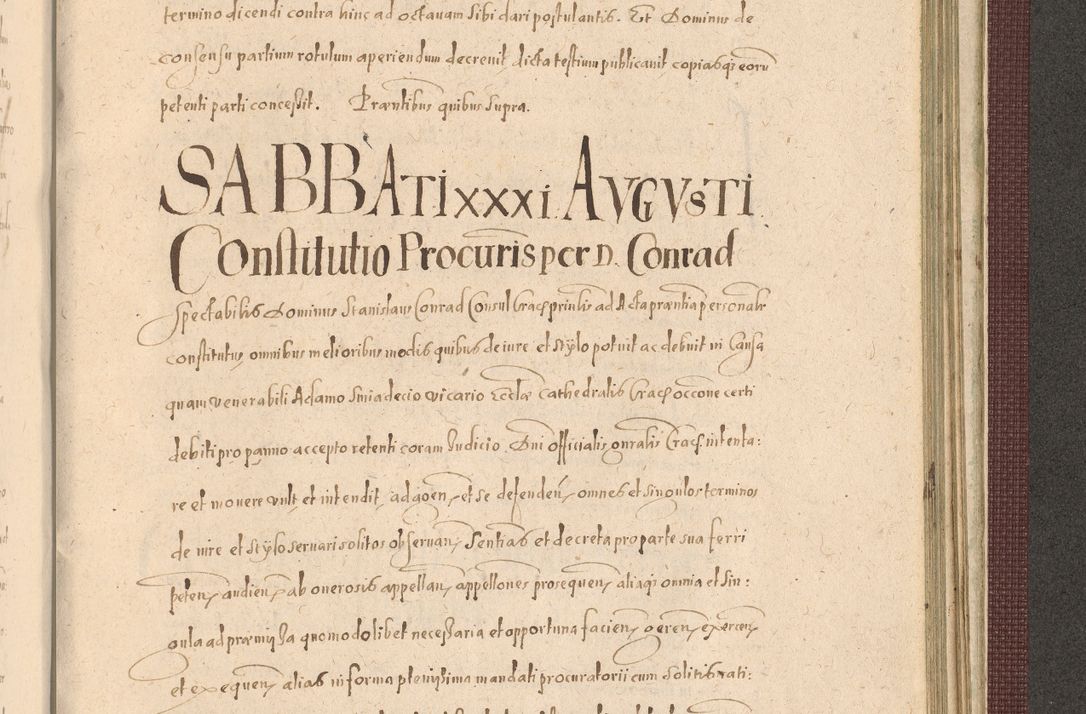 termino dicendi contra hinc ad octauam sibi dari postulantis. Et Dominus de
consensu partium rotulum aperiendum decreuit, dicta testium publicauit copiasq; eorū
petenti parti concessit. Præntibus quibus supra.
SABBATI XXXI AVGVSTI
Constitutio Procuris per D. Conrad
Spectabilis Dominus Stanislaus Conrad Consul Crac prīnlis ad Acta præntia personalr
constitutus, omnibus melioribus modis quibus de iure et stÿlo potuit ac debuit in Causa
quam venerabili Adamo Smiadecio vicario Eccłæ Cathedralis Crac occone certi
debiti pro panno accepto retenti coram Judicio Dni officialis gnralis Crac intenta:
re et mouere vult et intendit, ad agen, et se defenden, omnes et singulos terminos
de iure et stÿlo seruari solitos obseruan, Sentias et decreta pro parte sua ferri
peten, audien, ab onerosis appellan, appellones prosequen, aliaq; omnia et sin:
gula ad præmissa quomodolibet necessaria et opportuna facien, geren, exercen,
et exequen, alias in forma plenissima mandati procuratorii cum solitis rati: